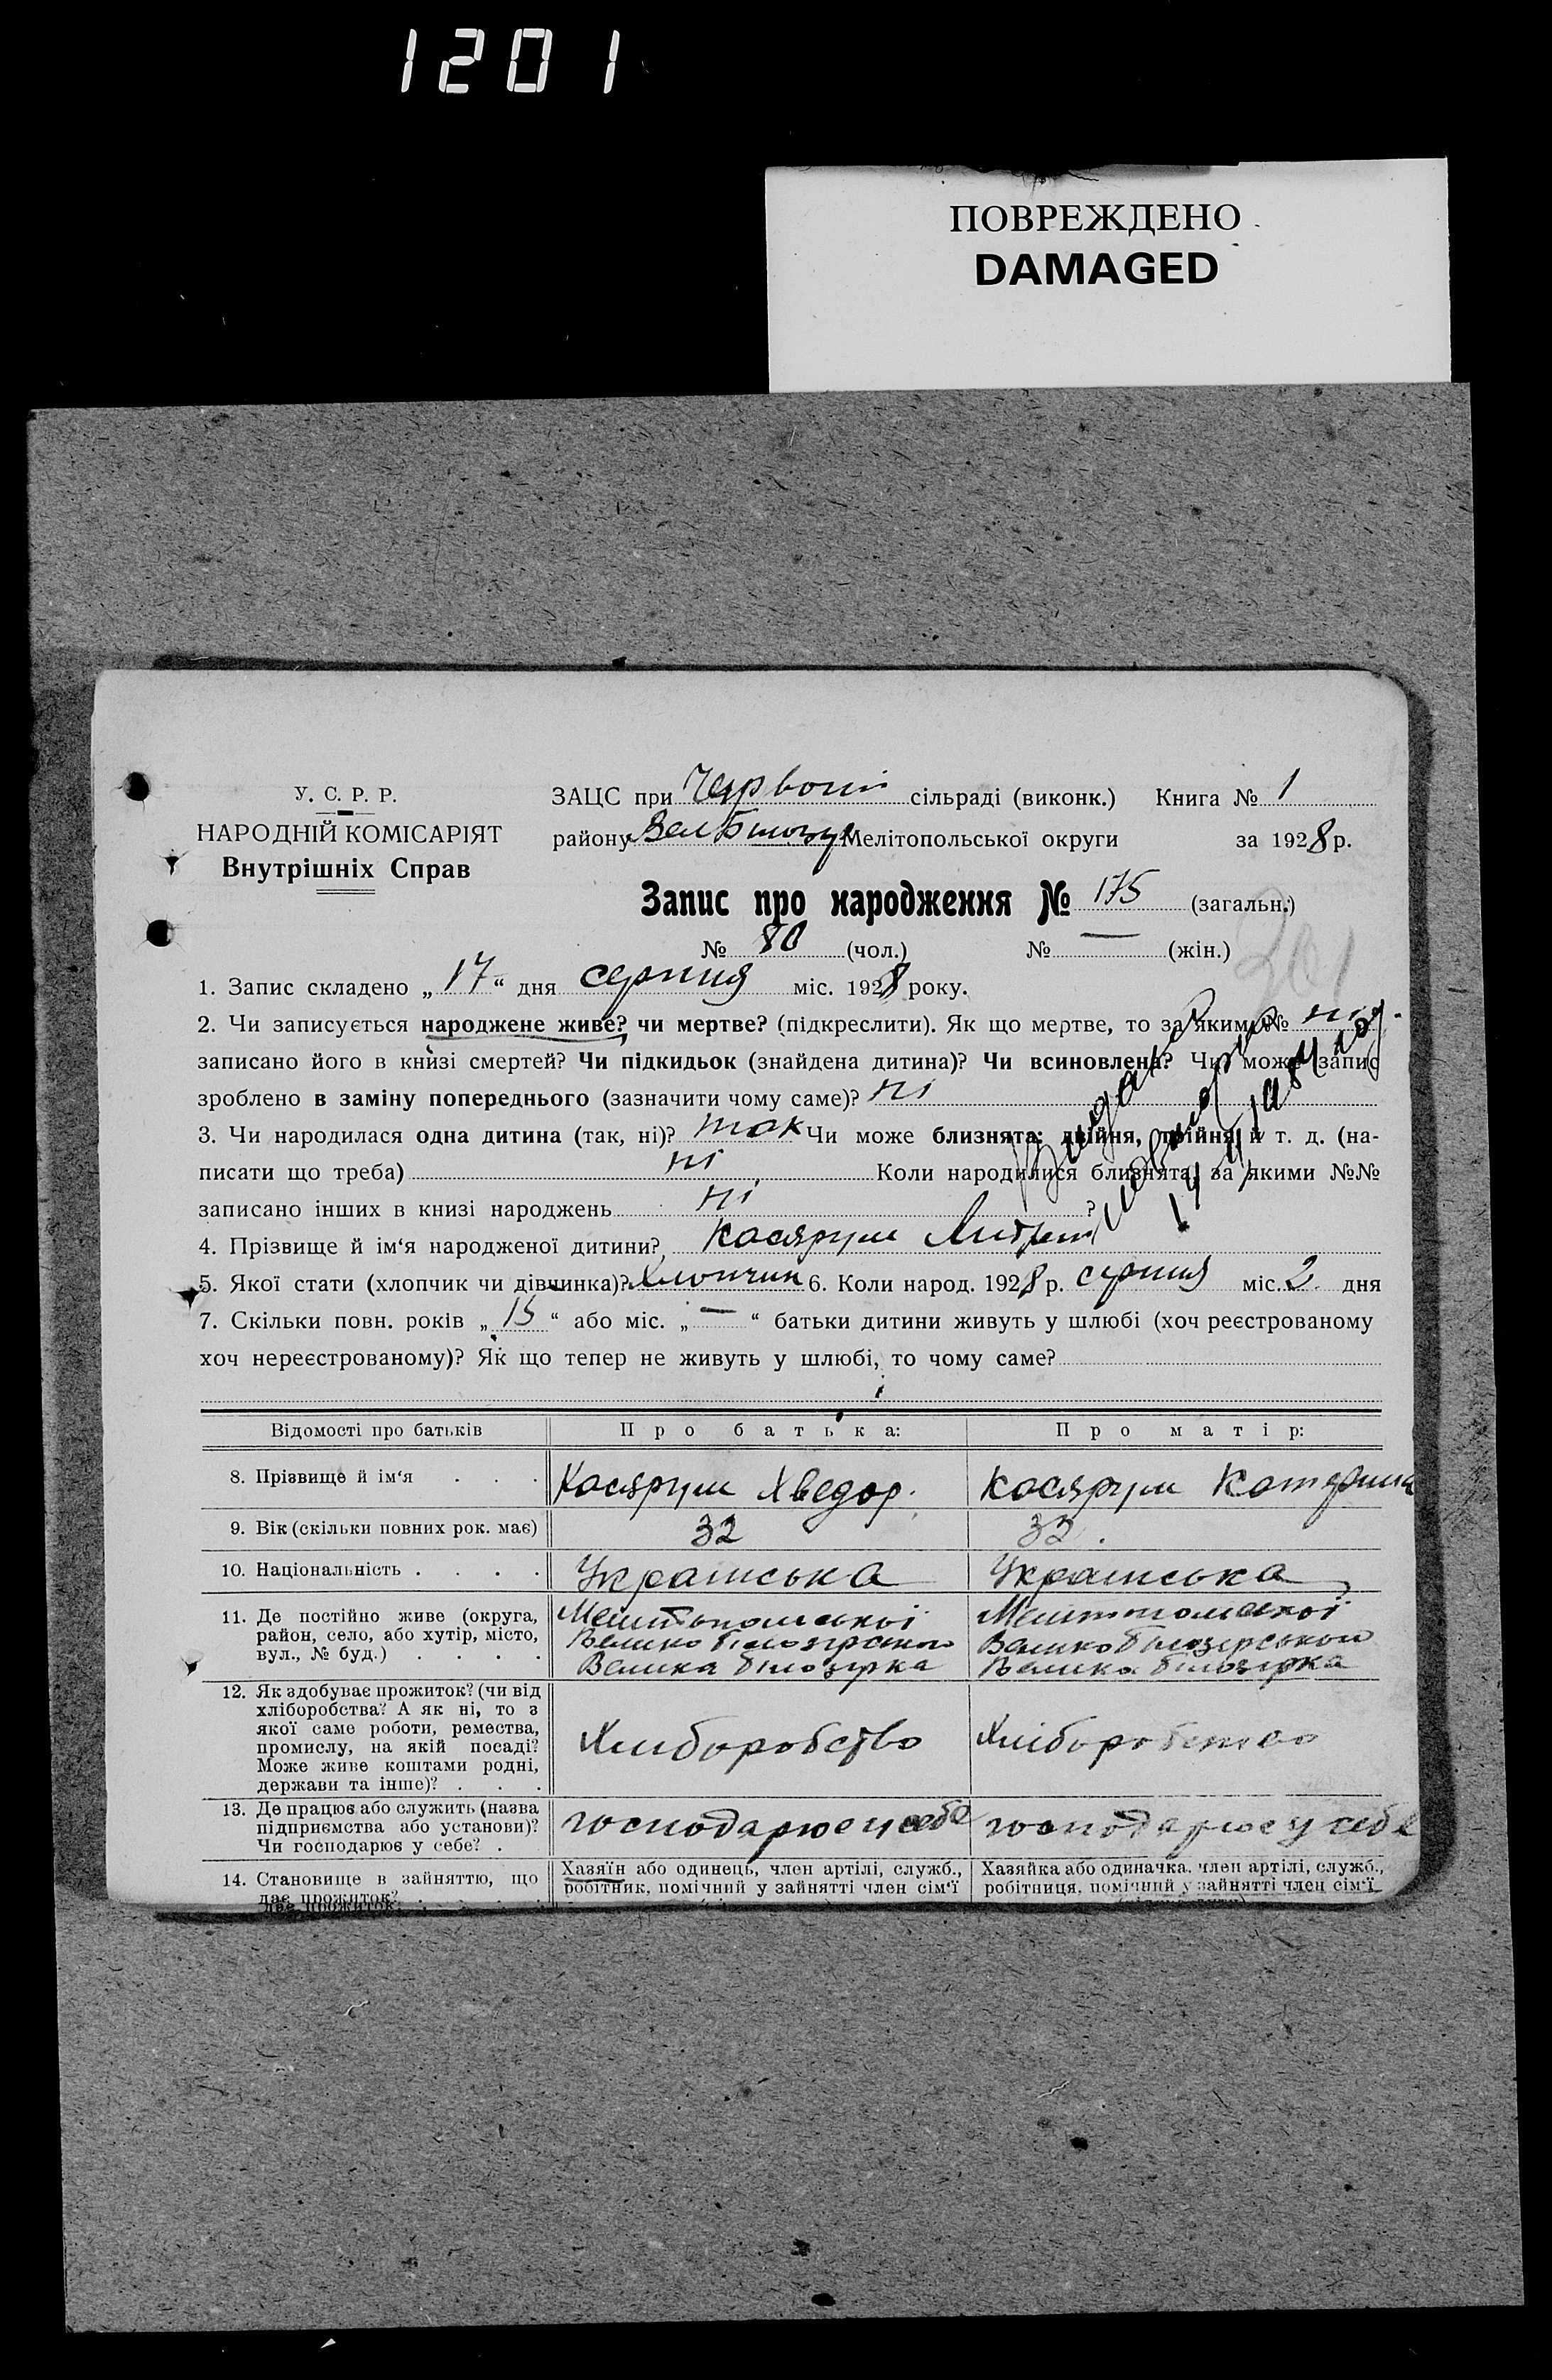 1201
ПОВРЕЖДЕНО
DAMAGED
У. С. Р. Р.
НАРОДНІЙ КОМІСАРІЯТ
Внутрішніх Справ
ЗАЦС при Червоній сільраді (виконк.) Книга № 1
району Вел Білозер Мелітопольської округи за 1928 р.
Запис про народження № 175 (загальн.)
№ 80 (чол.) № — (жін.)
201
1. Запис складено „17“ дня серпня міс. 1928 року.
2. Чи записується народжене живе? чи мертве? (підкреслити). Як що мертве, то за яким №
записано його в книзі смертей? Чи підкидьок (знайдена дитина)? Чи всиновлена? Чи може запис
зроблено в заміну попереднього (зазначити чому саме)? ні
3. Чи народилася одна дитина (так, ні)? так Чи може близнята: двійня, трійня й т. д. (на-
писати що треба) ні Коли народилися близнята, за якими №№
записано інших в книзі народжень ні ?
4. Прізвище й ім‘я народженої дитини? Косярум
5. Якої стати (хлопчик чи дівчинка)? Хлопчик 6. Коли народ. 1928 р. серпня міс. 2 дня
7. Скільки повн. років „15“ або міс. „—“ батьки дитини живуть у шлюбі (хоч реєстрованому
хоч нереєстрованому)? Як що тепер не живуть у шлюбі, то чому саме?
Відомості про батьків Про батька: Про матір:
8. Прізвище й ім‘я . . . Косярум Хведор. Косярум Катерина
9. Вік (скільки повних рок. має) 32 32.
10. Національність . . . . Українська Українська
11. Де постійно живе (округа, Мелітопольської Мелітопольської
район, село, або хутір, місто, Велико Білозірського Велико Білозерського
вул., № буд.) . . . . Велика Білозірка Велика Білозірка
12. Як здобуває прожиток? (чи від
хліборобства? А як ні, то з
якої саме роботи, ремества, Хліборобство Хліборобство
промислу, на якій посаді?
Може живе коштами родні,
держави та інше)? . . .
13. Де працює або служить (назва
підприємства або установи)? господарює у себе господарює у себе
Чи господарює у себе? .
14. Становище в зайняттю, що Хазяїн або одинець, член артілі, служб., Хазяйка або одиначка, член артілі, служб.,
дає прожиток? . . . . робітник, помічний у зайнятті член сім‘ї робітниця, помічний у зайнятті член сім‘ї